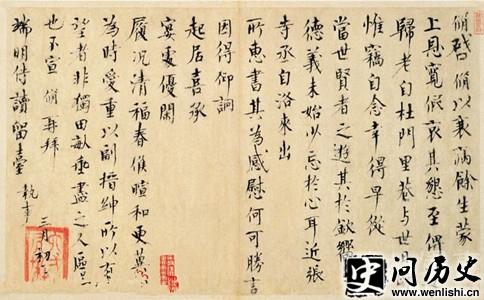 脩啓脩以衰病餘生蒙
上恩寬假哀其懇至俾
歸老自杜門里巷與世
惟竊自念幸得早從
當世賢者之遊其於欽嚮
德義未始少忘於心耳近張
寺丞自洛來出
所惠書其為感慰何可勝言
因得仰詢
起居喜承
宴處優閑
履況清福春候暄和更冀
為時愛重以副搢紳所以有
望者非獨田畝垂盡之人區區
也不宣脩再拜
端明侍讀留臺執事
三月初二
史问历史
www.wenlishi.cn